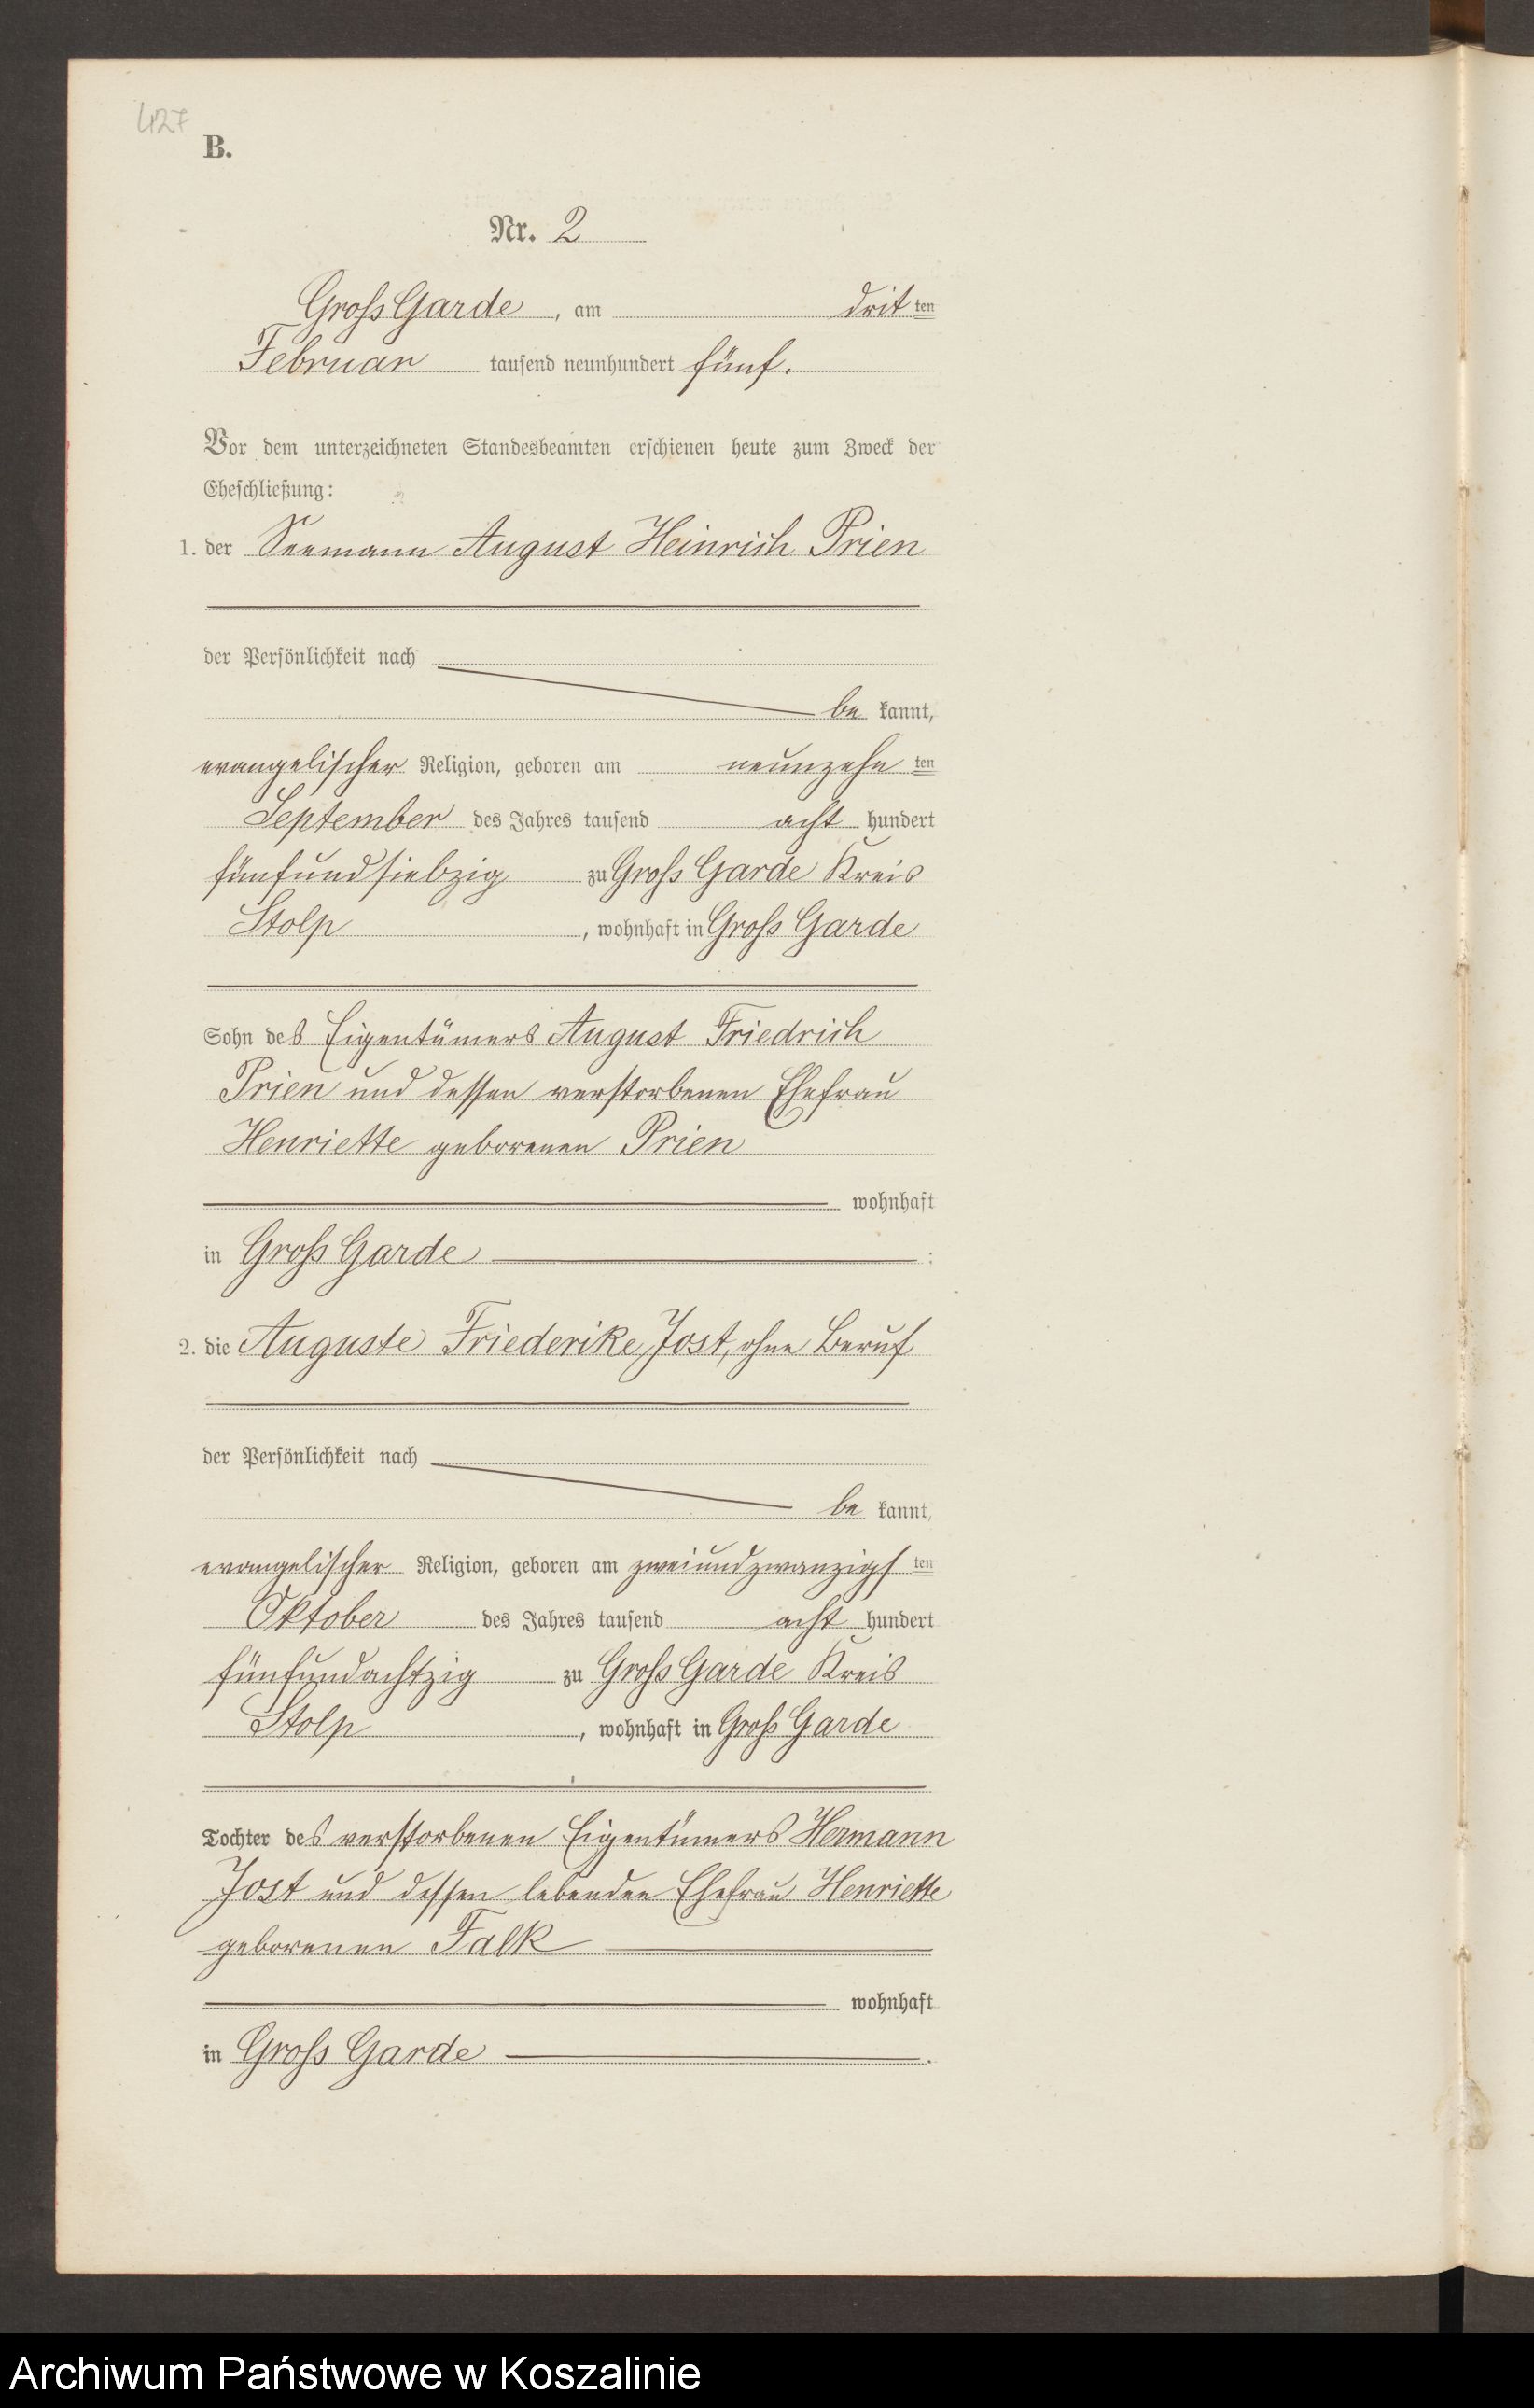 427
B.
Nr. 2
Groß Garde, am dritten
Februar tausend neunhundert fünf.
Vor dem unterzeichneten Standesbeamten erschienen heute zum Zweck der
Eheschließung:
1. der Seemann August Heinrich Prien
der Persönlichkeit nach
be kannt,
evangelischer Religion, geboren am neunzehn ten
September des Jahres tausend acht hundert
fünfundsiebzig zu Groß Garde Kreis
Stolp, wohnhaft in Groß Garde
Sohn des Eigentümers August Friedrich
Prien und dessen verstorbenen Ehefrau
Henriette geborenen Prien
wohnhaft
in Groß Garde :
2. die Auguste Friederike Jost, ohne Beruf
der Persönlichkeit nach
be kannt,
evangelischer Religion, geboren am zweiundzwanzigsten
Oktober des Jahres tausend acht hundert
fünfundachtzig zu Groß Garde Kreis
Stolp, wohnhaft in Groß Garde
Tochter des verstorbenen Eigentümers Hermann
Jost und dessen lebenden Ehefrau Henriette
geborenen Falk
wohnhaft
in Groß Garde .
Archiwum Państwowe w Koszalinie